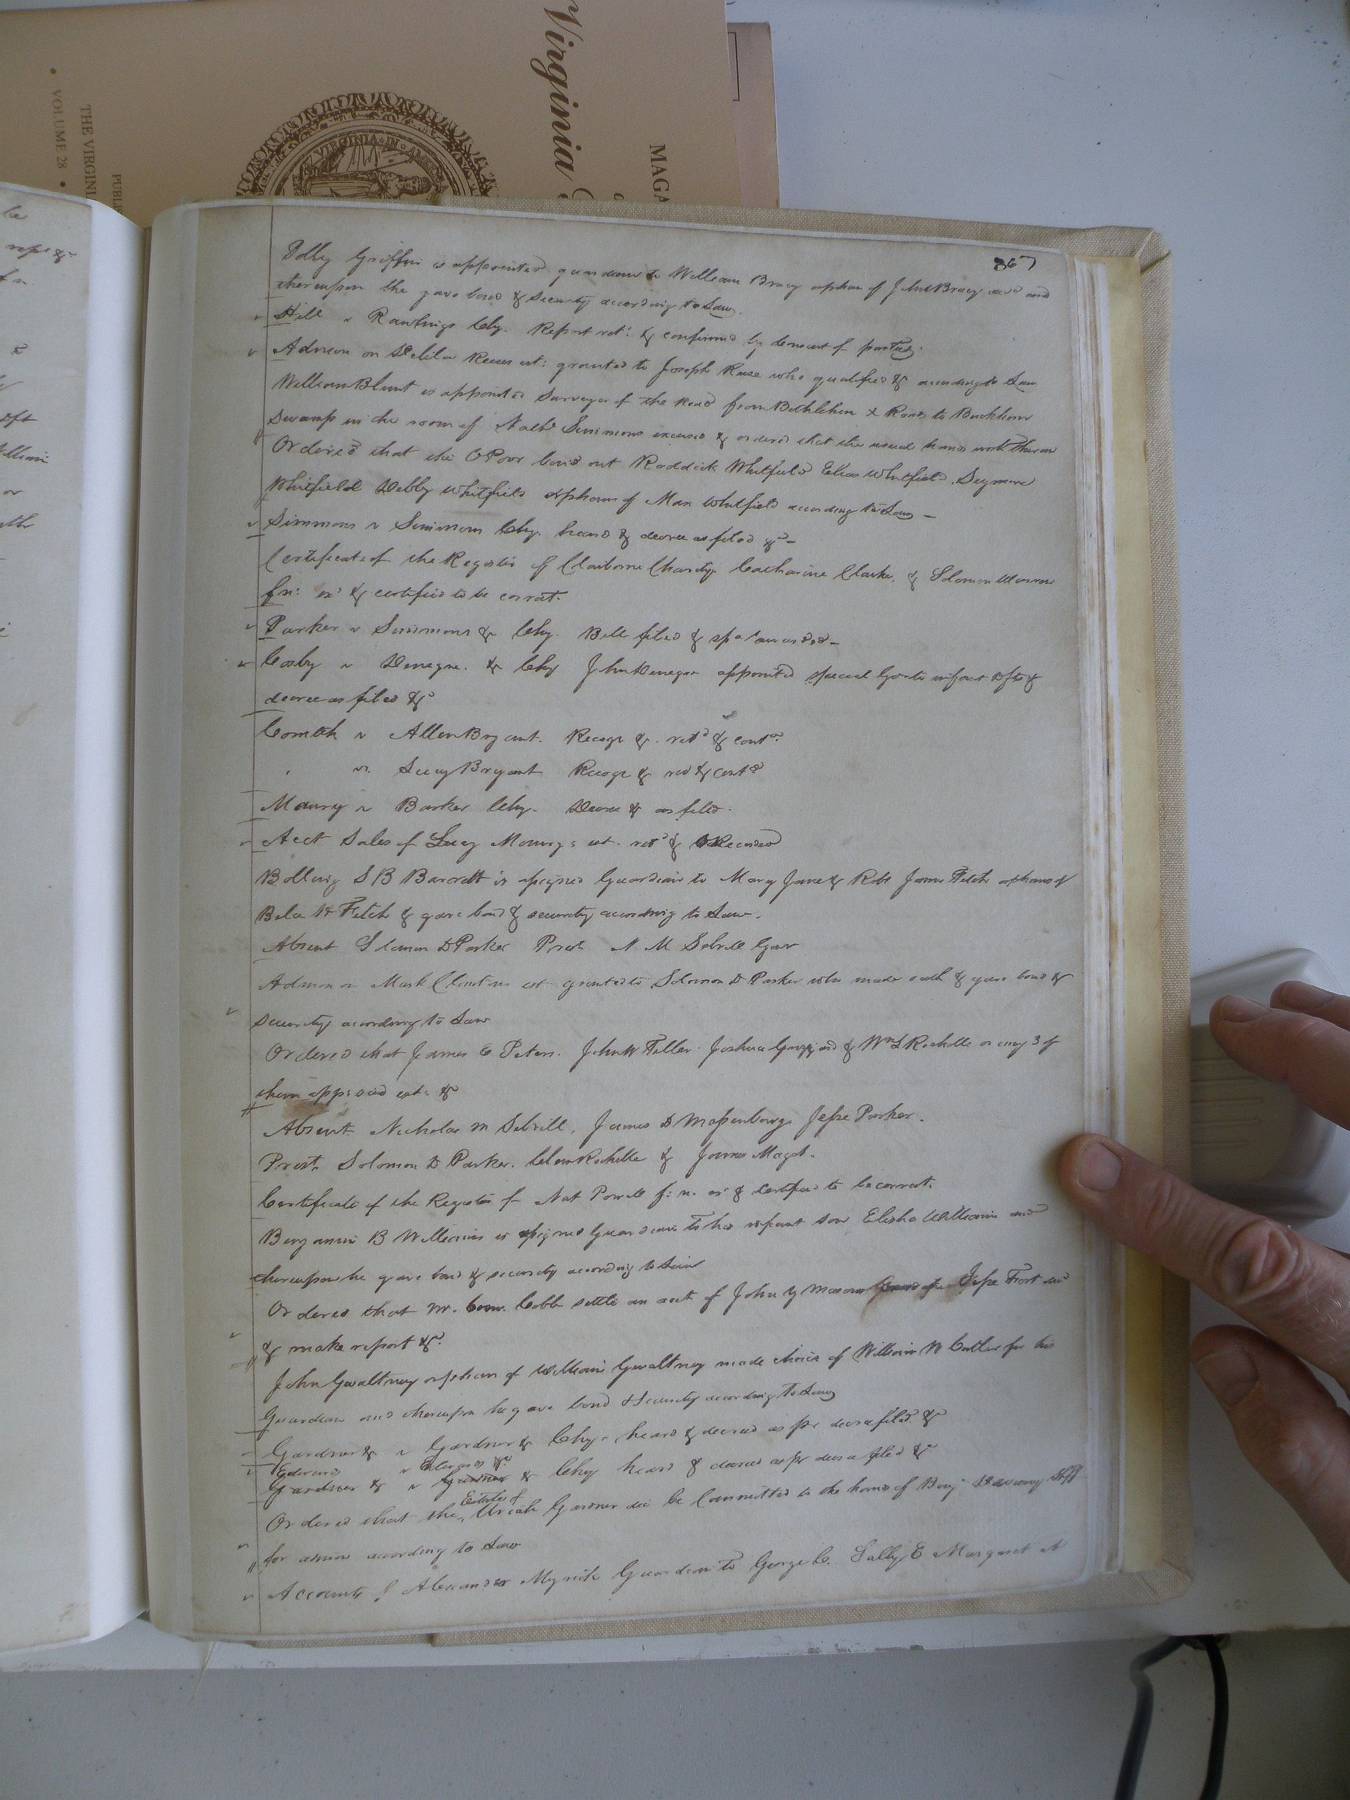 Virginia
MAGA
THE VIRGINI
PUBLI
• VOLUME 28 •
VIRGINIA
367
Polly Griffin is appointed guardian to William Bracy orphan of John Bracy decd and
thereupon she gave bond & security according to Law.
Hill v Rawlings Chy. Report retd. & confirmed by consent of parties.
Admon on Delila est: granted to Joseph who qualified & according to Law
William Blunt is appointed Surveyor of the road from Bethlehem X Roads to
Swamp in the room of Simmons excused & ordered that the usual hands work thereon
Ordered that the O Poor bind out Roddick Whitfield Elias Whitfield
Whitfield Debby Whitfield orphans of Max Whitfield according to Law —
Simmons v Simmons Chy. heard & decree as filed &c —
Certificate of the Register of Claiborne Charity Catharine Clarke, & Solomon
fn: exd & certified to be correct.
Parker v Simmons & Chy. Bill filed & spa awarded —
Cosby v & Chy John appointed special Gn to infant Dfts &
decree as filed &c
Comwth v Allen Bryant. Recogr &. retd & contd
vs. Lucy Bryant Recogr & retd & contd
Maury v Barker Chy. Decree & as filed.
Acct Sales of Lucy Maury's est. retd & Recorded
Bolling S B Barrett is assigned Guardian to Mary Jane & Robt James Fitch orphans of
H Fitch & gave bond & security according to Law.
Absent Solomon D Parker Prest. N. M Sebrell Gent
Admon on Mark est granted to Solomon D Parker who made oath & gave bond &
security according to Law
Ordered that James C Peters. John W Feller Joshua & Wm L Rochelle or any 3 of
them appraise said est: &
Absent Nicholas M Sebrell, James D Massenburg Jesse Parker.
Prest. Solomon D Parker. Clem Rochelle & James Maget.
Certificate of the Register for Nat Powell f: n. exd & Certified to be correct.
Benjamin B Williams is assigned Guardian to his infant son Elisha Williams and
thereupon he gave bond & security according to Law
Ordered that Mr. Cobb settle an acct of John Y Mason Jesse Trost decd
& make report &c.
John Gwaltney orphan of William Gwaltney made choice of William N Butler for his
Guardian and thereupon he gave bond & security according to Law
Gardner & v Gardner & Chy. heard & decreed as pr decree filed &c
Edwards v Edwards &c
Gardner & v Gardner & Chy heard & decreed as pr decree filed &c
Estate of
Ordered that the Uriah Gardner decd be Committed to the hands of Benj. Shff
for admon according to Law
Accounts of Alexander Myrick Guardian to George C. Sally E Margaret N